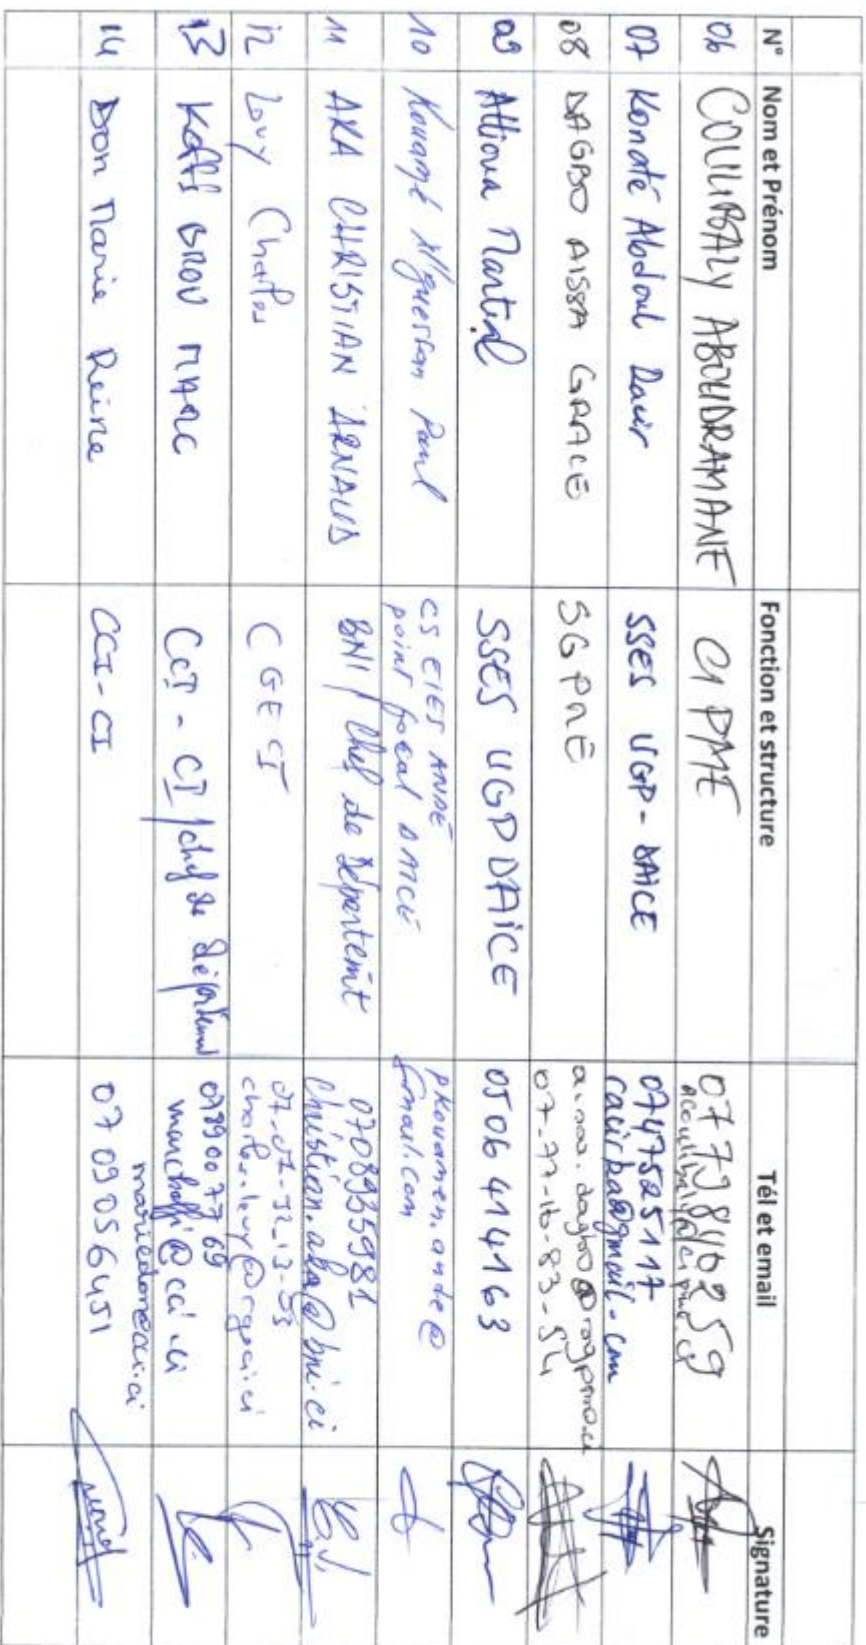 N° Nom et Prénom Fonction et structure Tél et email Signature
06 COULIBALY ABOUDRAMANE CI PME 0779840259
07 Konaté Abdoul Racir SSES UGP-DAICE 0747525117
racirba@gmail.com
08 DAGBO AISSA GRACE SGPME
07-77-16-83-54
09 Martial SSES UGP DAICE 0506414163
10 Kouamé N'guessan Paul CS EIES ANDE
point focal DAICE
pkouamen.ande@
gmail.com
11 AKA CHRISTIAN ARNAUD BNI / Chef de Département 0708935981
christian.aka@bni.ci
12 Lovy Charles CGECI
13 Koffi BROU MARC CCI-CI / chef de département 0789007769
marckoffi@cci.ci
14 Don Marie Reine CCI-CI mariedon@cci.ci
0709056451